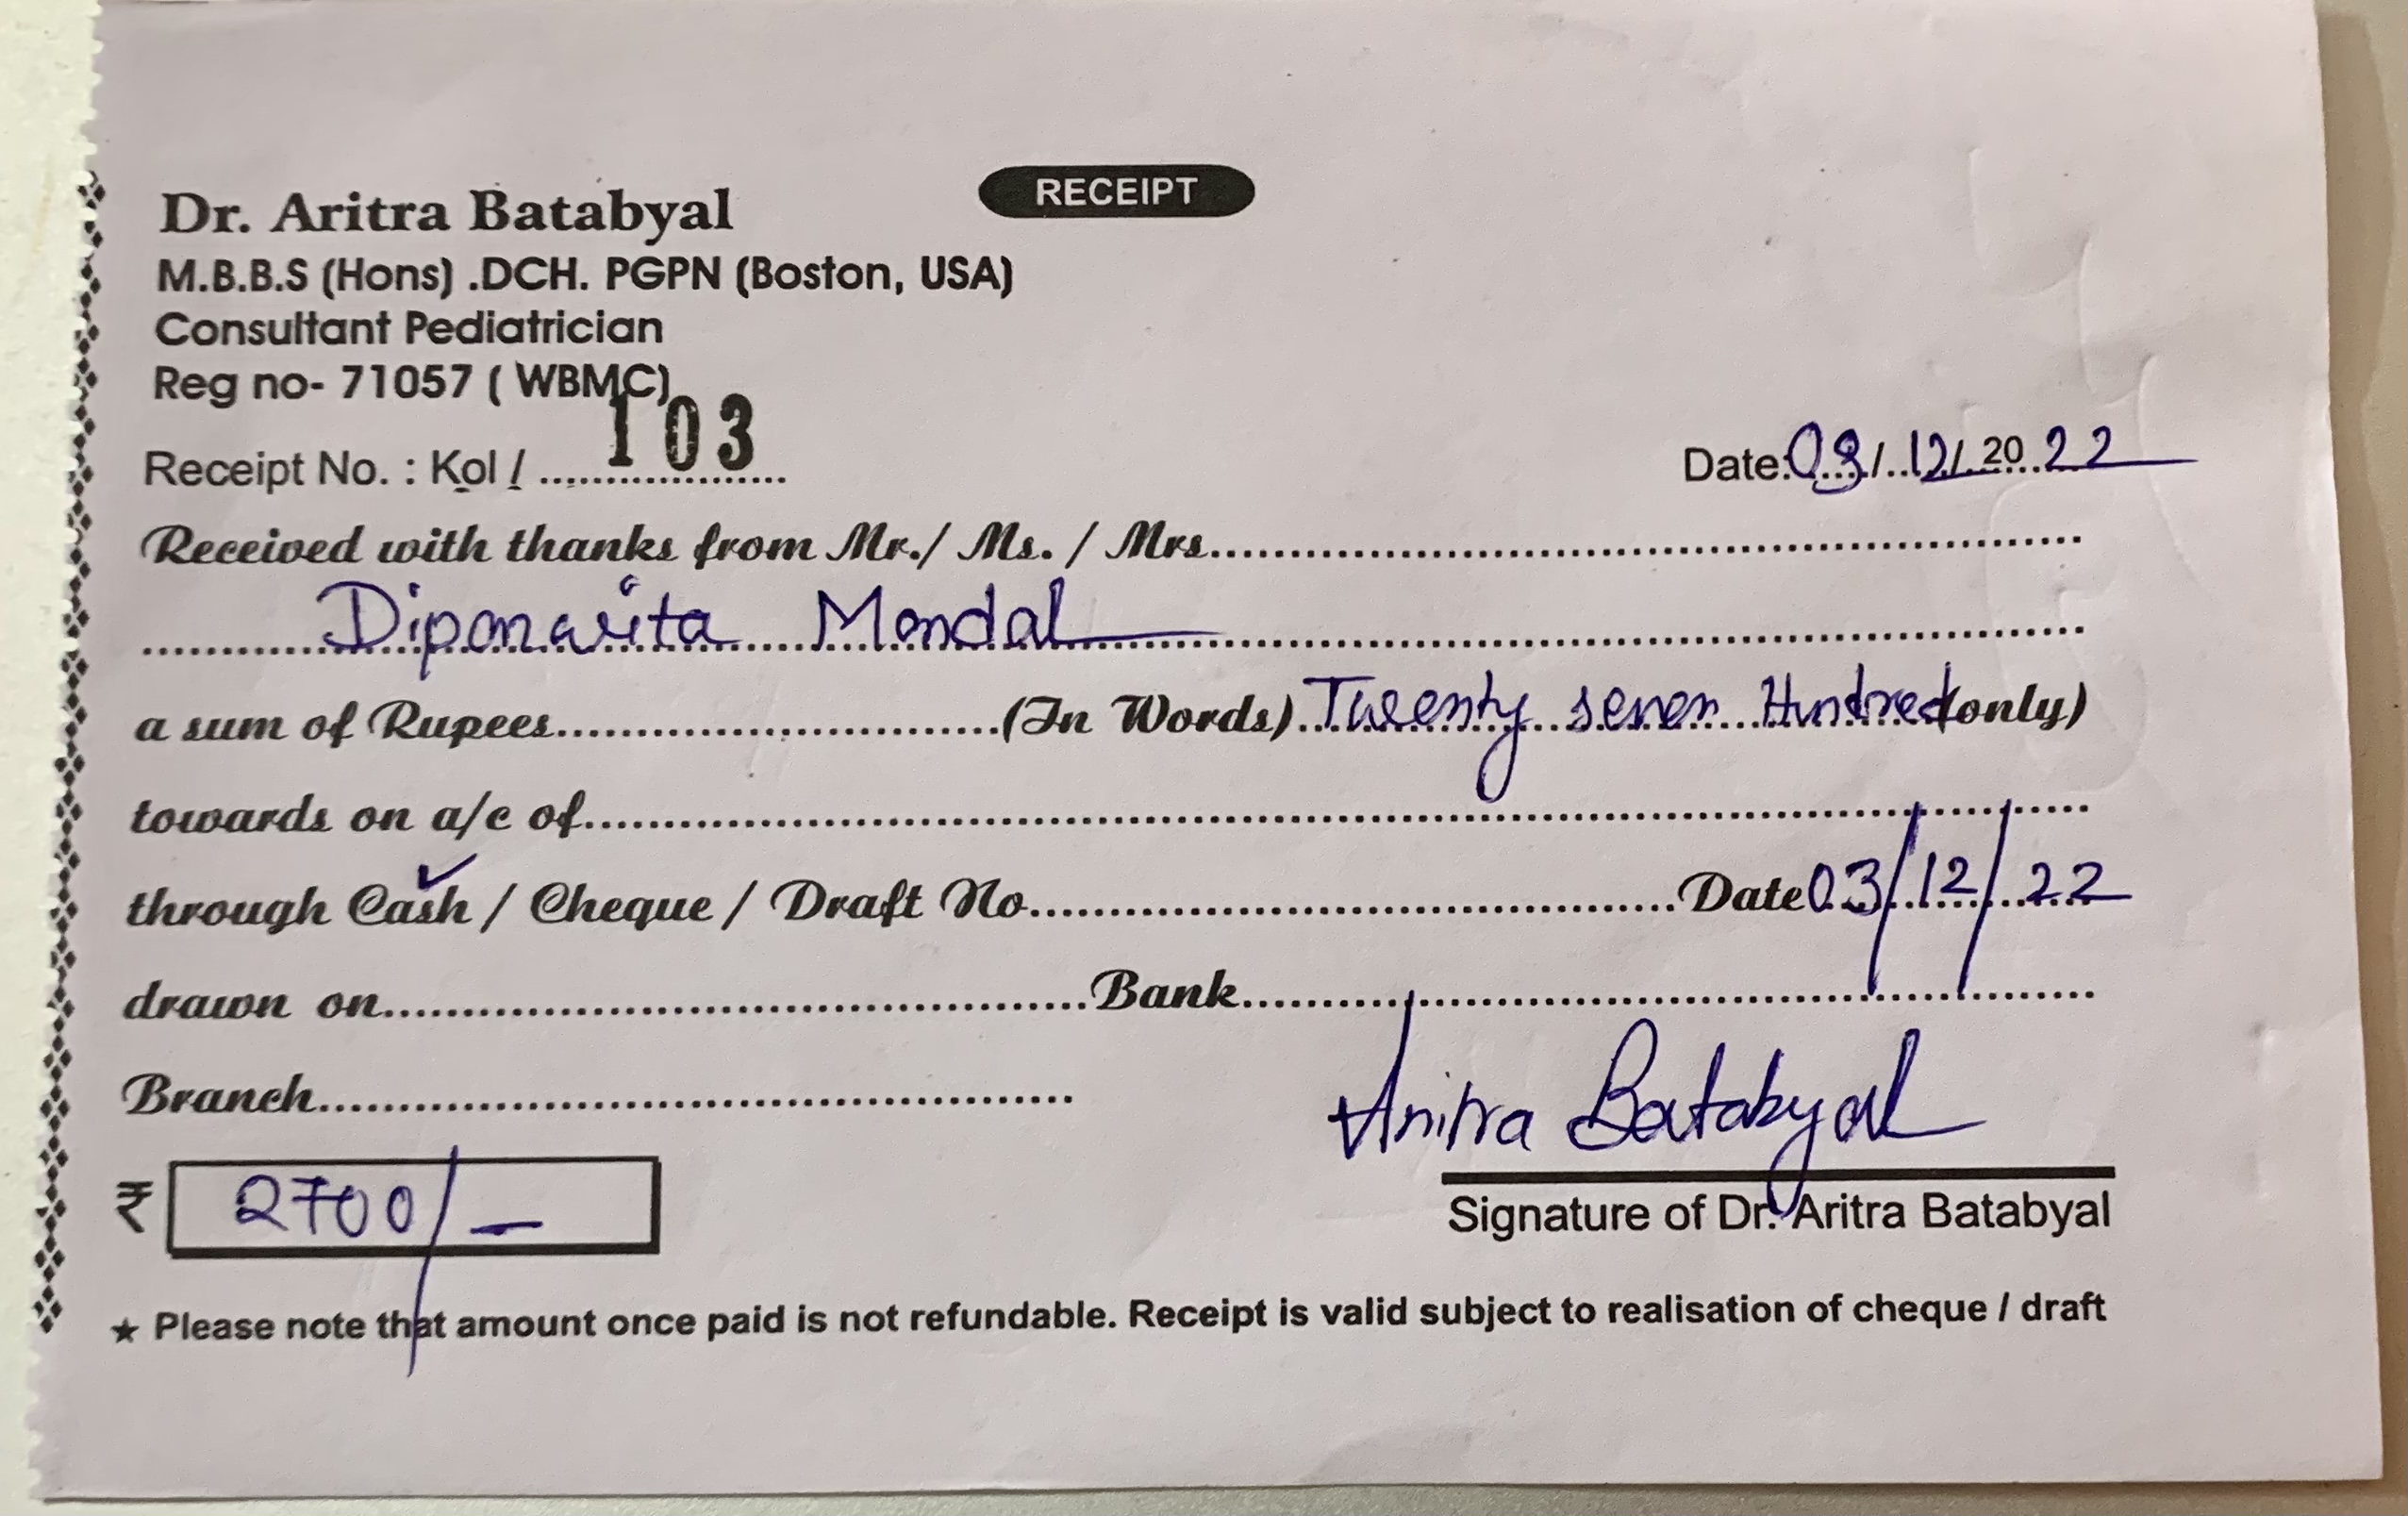 RECEIPT
Dr. Aritra Batabyal
M.B.B.S (Hons) .DCH. PGPN (Boston, USA)
Consultant Pediatrician
Reg no- 71057 ( WBMC)
Receipt No. : Kol / 103 Date: 03/12/2022
Received with thanks from Mr./ Ms. / Mrs
Mondal
a sum of Rupees (In Words) Twenty seven Hundred (only)
towards on a/c of
through Cash / Cheque / Draft No Date 03/12/22
drawn on Bank
Branch
Aritra Batabyal
₹ 2700/-
Signature of Dr. Aritra Batabyal
★ Please note that amount once paid is not refundable. Receipt is valid subject to realisation of cheque / draft